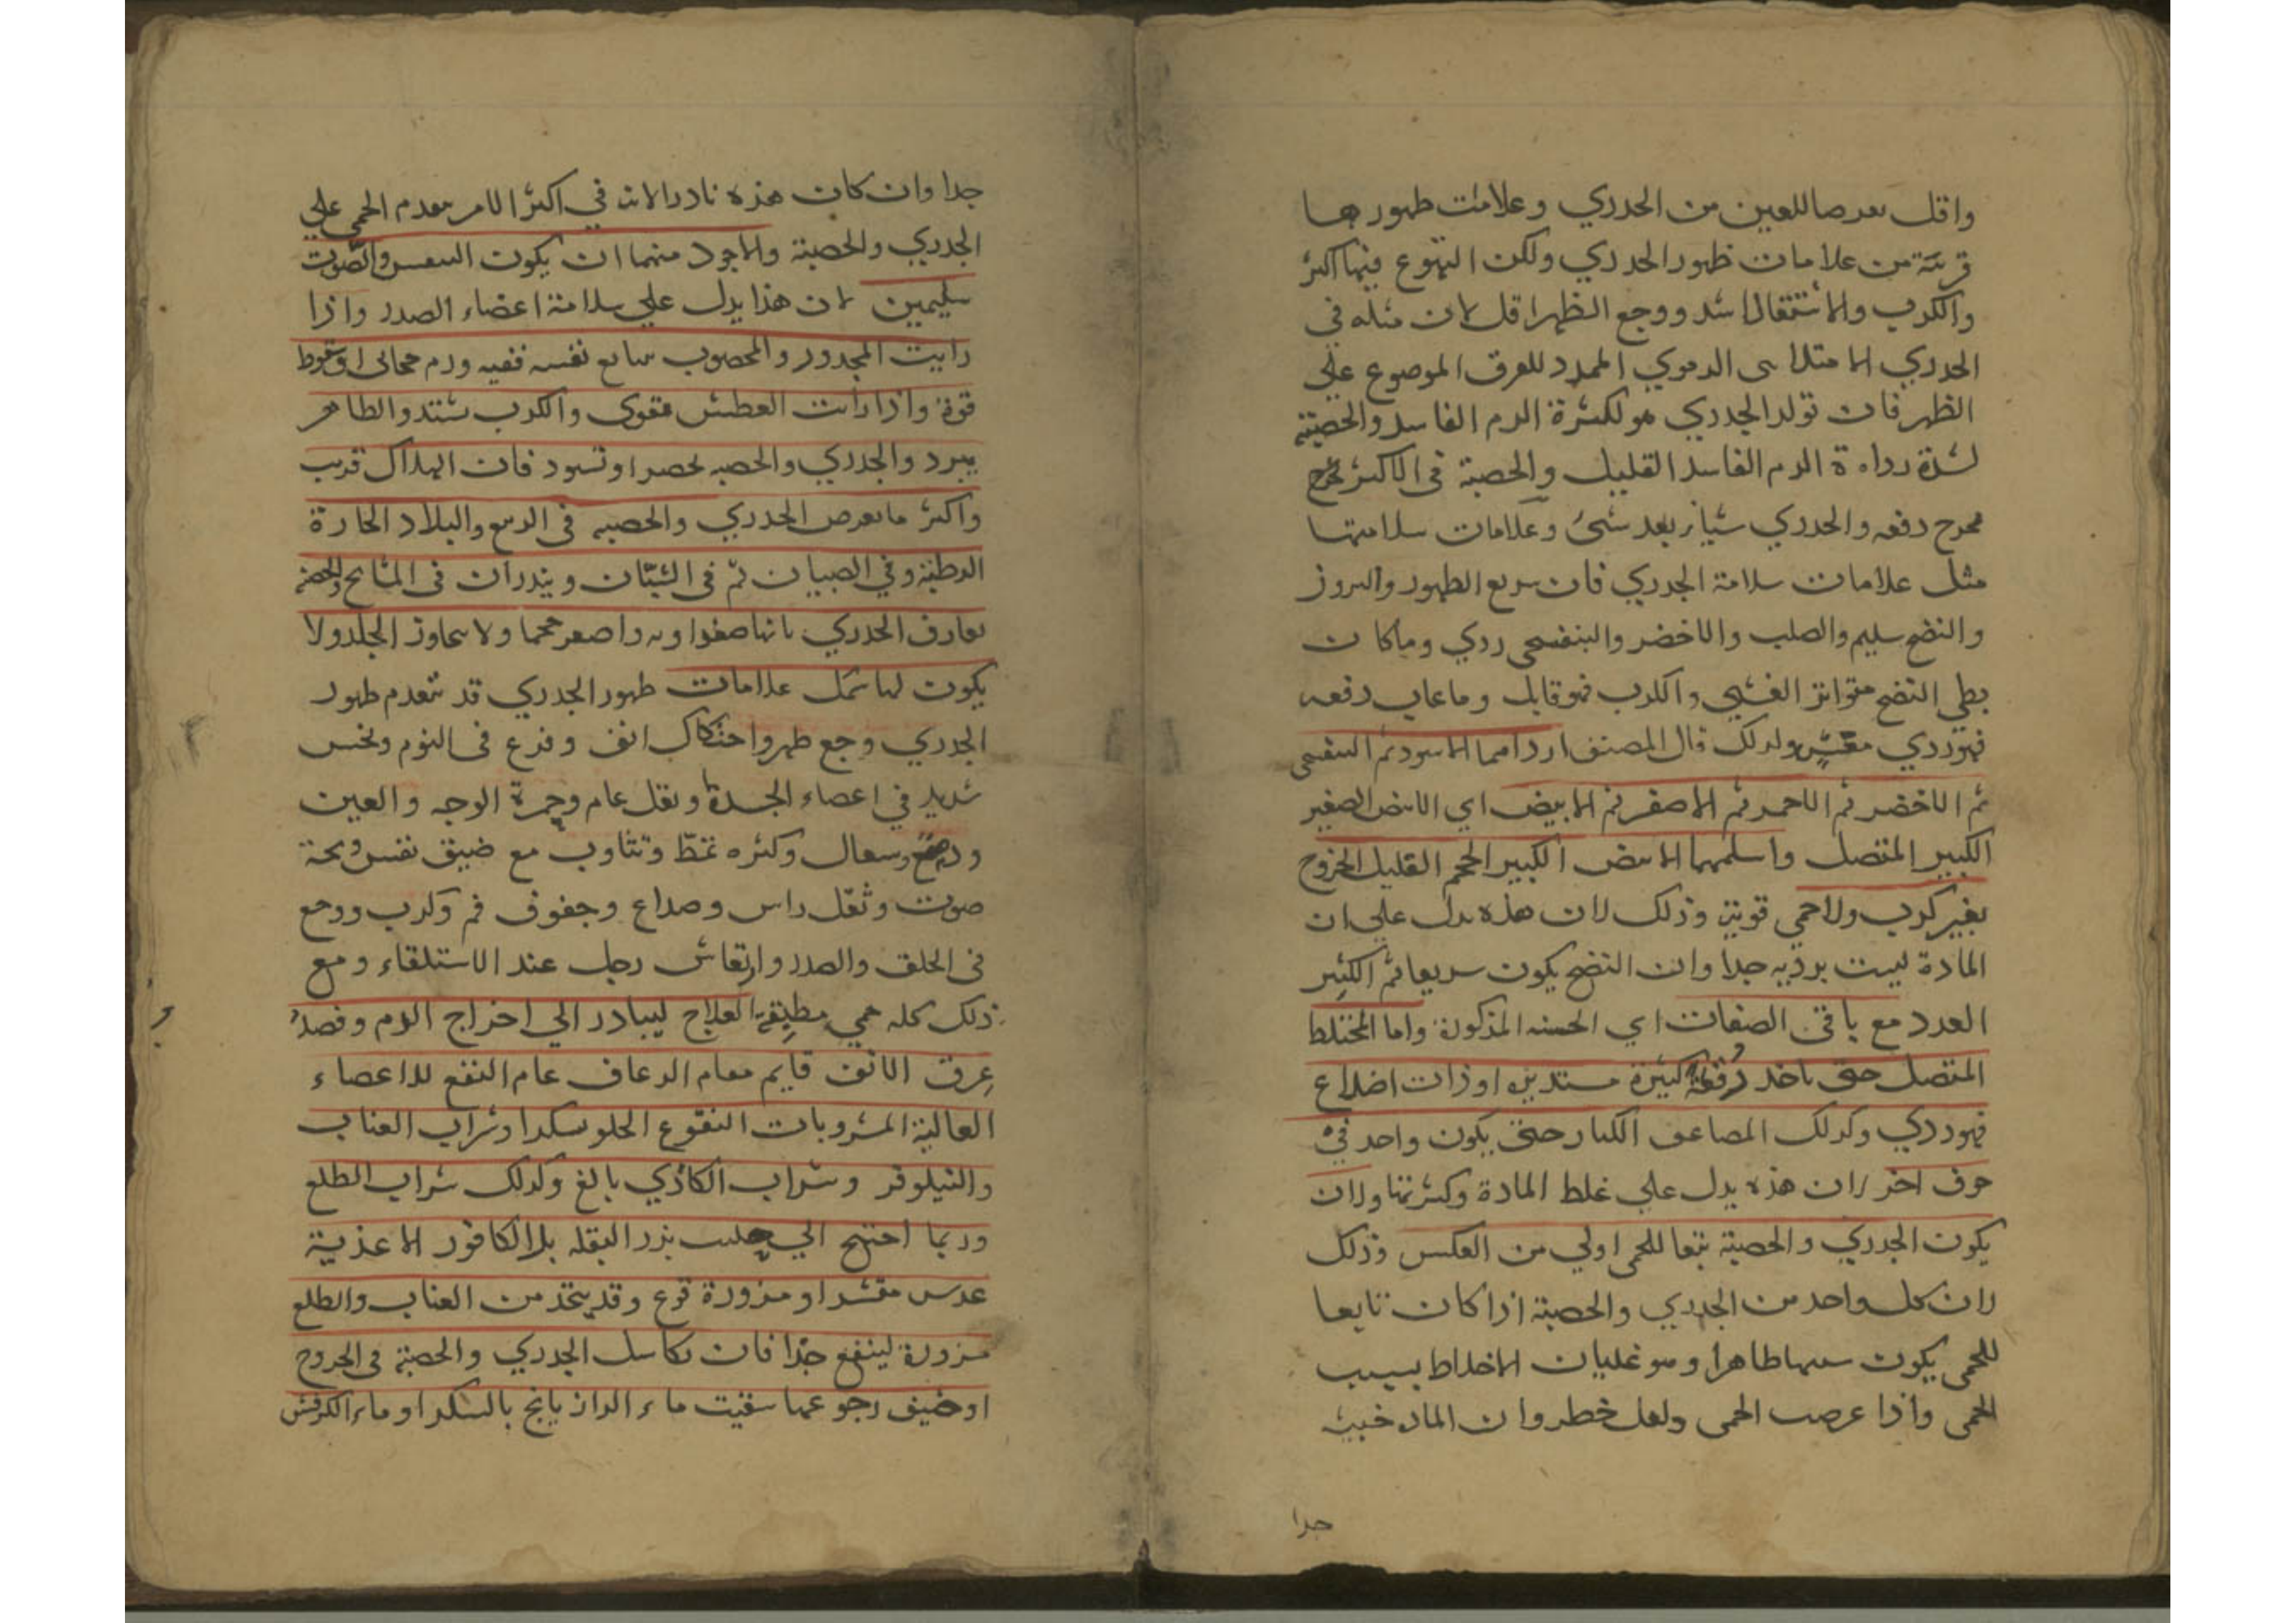 واقل تعرضا للعين من الجدري وعلامات ظهورها
قريبة من علامات ظهور الجدري ولكن التهوع فيها اكثر
والكرب والاشتعال اشد ووجع الظهر اقل لان مثله في
الجدري الامتلاء الدموي الممدد للعرق الموضوع علي
الظهر فان تولد الجدري هو لكثرة الدم الفاسد والحصبة
لشدة رداءة الدم الفاسد القليل والحصبة في الاكثر تخرج
دفعه والجدري شيا بعد شئ وعلامات سلامتها
مثل علامات سلامة الجدري فان سريع الظهور والبروز
والنضج سليم والصلب والاخضر والبنفسجي ردي وما كان
بطي النضج متواتر الغشي والكرب فهو قاتل وما غاب دفعه
فهو ردي مغش ولذلك قال المصنف اردا مما الاسود ثم البنفسجي
ثم الاخضر ثم الاحمر ثم الاصفر ثم الابيض اي الابيض الصغير
الكبير المتصل واسلمهما الابيض الكبير الحجم القليل الخروج
بغير كرب ولا حمي قوية وذلك لان هذه يدل علي ان
المادة ليست برديه جدا وان النضج يكون سريعا ثم الكثير
العدد مع باقي الصفات اي الحسنه المذكورة واما المختلط
المتصل حتي ياخد رقعة كبيرة مستديره او ذات اضلاع
فهو ردي وكذلك المضاعف الكبار حتي يكون واحد في
جوف اخر لان هذه يدل علي غلظ المادة وكثرتها ولان
يكون الجدري والحصبة تبعا للحمى اولي من العكس وذلك
لان كل واحد من الجدري والحصبة اذا كان تابعا
للحمى يكون سببها ظاهرا وهو غليان الاخلاط بسبب
الحمى واذا عرضت الحمى خطر وان الماده خبيثة
جدا
جدا وان كان هذه نادر الان في اكثر الامر تقدم الحمى علي
الجدري والحصبة والاجود منهما ان يكون النفس والصوت
سليمين لان هذا يدل علي سلامة اعضاء الصدر واذا
رايت المجدور والمحصوب يتابع نفسه ففيه ورم حجابى او سقوط
قوة واذا رايت العطش يقوى والكرب يشتد والظاهر
يبرد والجدري والحصبه يخضر او تسود فان الهلاك قريب
واكثر ما يعرض الجدري والحصبه في الربيع والبلاد الحارة
الرطبة وفي الصبيان ثم في الشبان ويندران في المشايخ والحصبة
تفارق الجدري بانها صفراويه واصغر حجما ولا تجاوز الجلد ولا
يكون لها سمك علامات ظهور الجدري قد تتقدم ظهور
الجدري وجع ظهر واحتكاك انف وفزع في النوم ونخس
شديد في اعضاء الجسد وثقل عام وحمرة الوجه والعين
ودمع وسعال وكثره تمطّ وتثاوب مع ضيق نفس وبحة
صوت وثقل راس وصداع وجفوف فم وكرب ووجع
في الحلق والصدر وارتعاش رجل عند الاستلقاء ومع
ذلك كله حمي مطبقة العلاج ليبادر الي اخراج الدم وفصد
عرق الانف قايم مقام الرعاف عام النفع للاعضاء
العالية المشروبات النقوع الحلو سكرا وشراب العناب
والنيلوفر وشراب الكاذي بالغ وكذلك شراب الطلع
وربما احتيج الي حليب بزر البقله بلا الكافور الاغذية
عدس مقشر او مزورة قرع وقد يتخذ من العناب والطلع
مزورة لينفع جدا فان تكاسل الجدري والحصبة في الخروج
او خيف رجوعها سقيت ماء الرازيانج بالسكر او ماء الكرفس